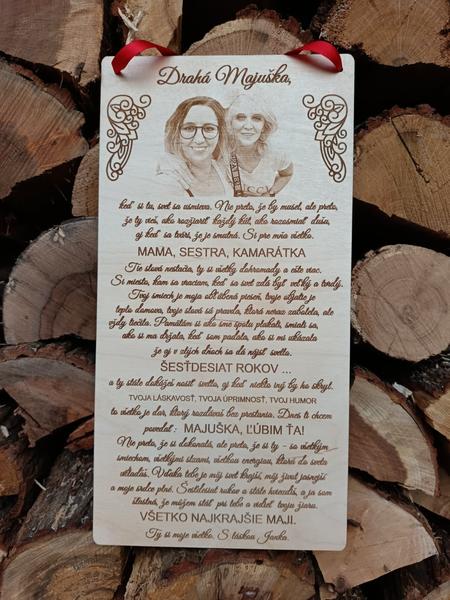 Drahá Majuška,
keď si tu, svet sa usmieva. Nie preto, že by musel, ale preto,
že ty vieš, ako rozžiariť každý kút, ako rozosmiať dušu,
aj keď sa tvári, že je smutná. Si pre mňa všetko.
MAMA, SESTRA, KAMARÁTKA
Tie slová nestačia, ty si všetky dohromady a ešte viac.
Si miesto, kam sa vraciam, keď sa svet zdá byť veľký a tvrdý.
Tvoj smiech je moja obľúbená pieseň, tvoje objatie je
teplo domova, tvoje slová sú pravda, ktorá neraz zabolela, ale
vždy liečila. Pamätám si ako sme spolu plakali, smiali sa,
ako si ma držala, keď som padala, ako si mi ukázala
že aj v zlých dňoch sa dá nájsť svetlo.
ŠESŤDESIAT ROKOV ...
a ty stále dokážeš nosiť svetlo, aj keď niekto iný by ho skryl.
TVOJA LÁSKAVOSŤ, TVOJA ÚPRIMNOSŤ, TVOJ HUMOR
to všetko je dar, ktorý rozdávaš bez prestania. Dnes ti chcem
povedať: MAJUŠKA, ĽÚBIM ŤA!
Nie preto, že si dokonalá, ale preto, že si ty - so všetkým
smiechom, všetkými slzami, všetkou energiou, ktorú do sveta
vkladáš. Vďaka tebe je môj svet krajší, môj život jasnejší
a moje srdce plné. Šesťdesiat rokov a stále hviezdiš, a ja som
šťastná, že môžem stáť pri tebe a vidieť tvoju žiaru.
VŠETKO NAJKRAJŠIE MAJI.
Ty si moje všetko. S láskou Janka.